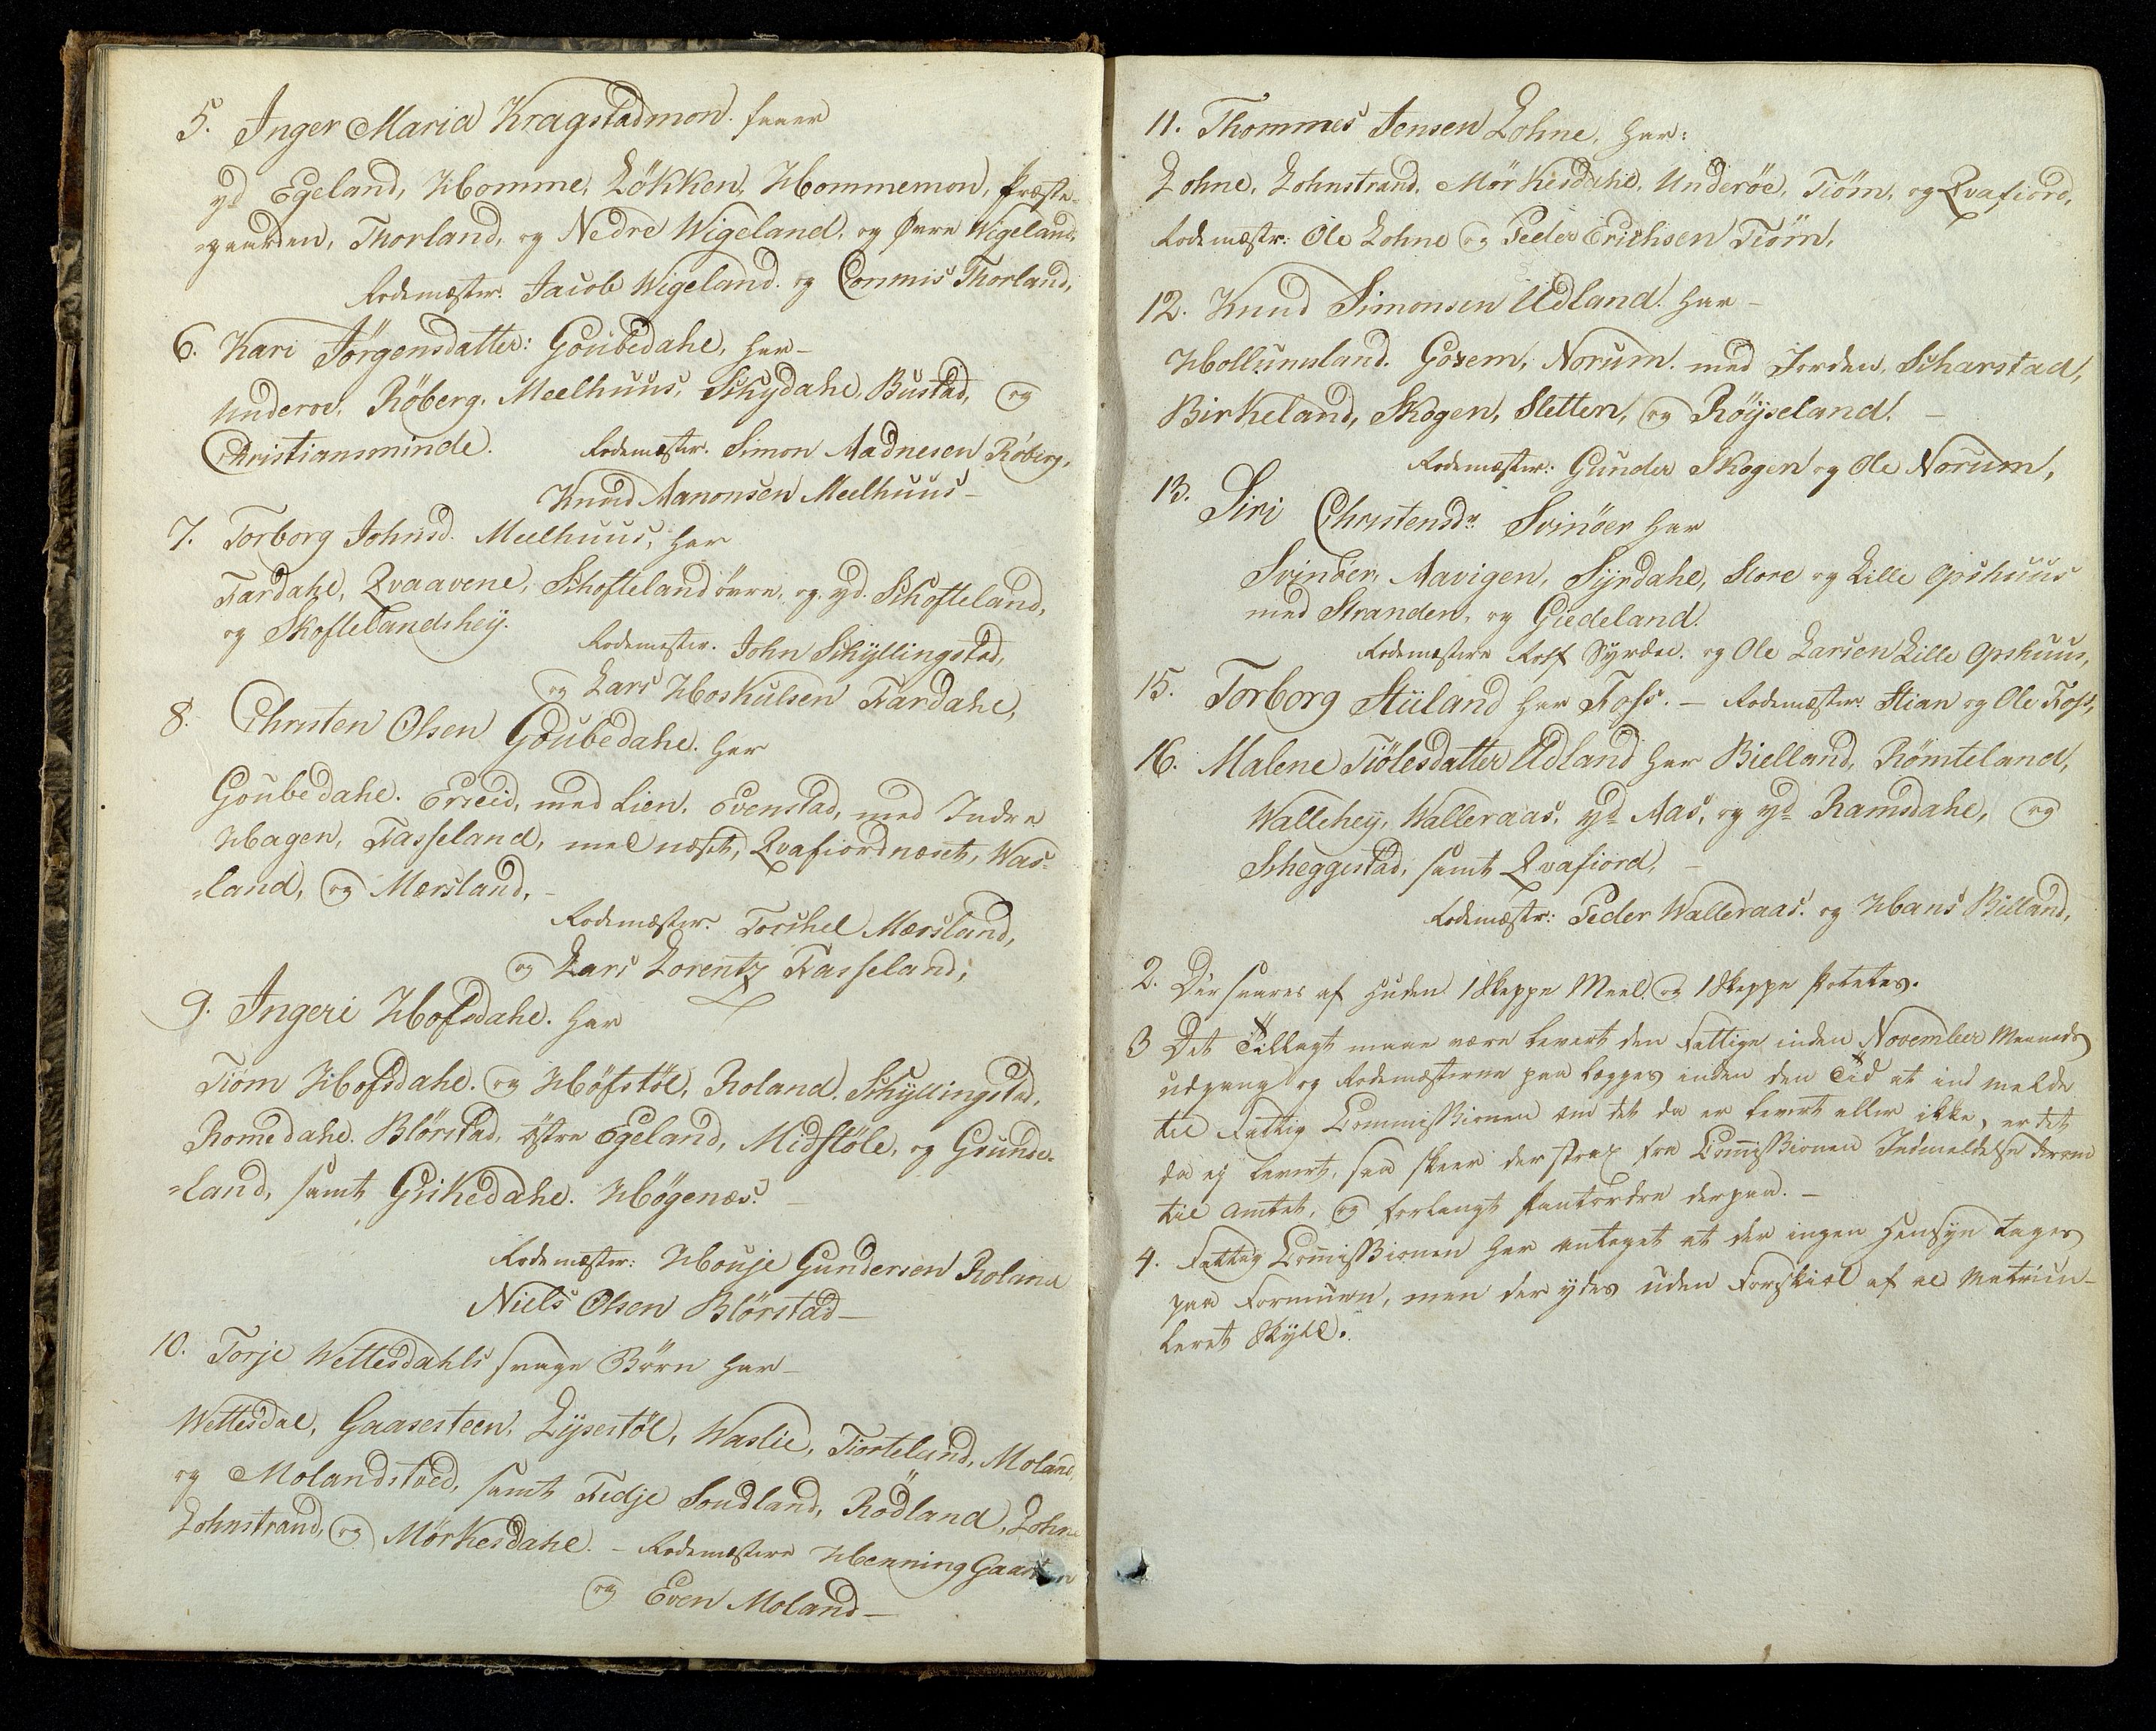 5. Inger Maria Kragstadmon. faaer
yd Egeland, Homme, Lökken, Hommemon, Præste-
=gaarden, Thorland, og Nedre Wigeland, og Øvre Wigeland,
Rodemæster. Jacob Wigeland. og Commis Thorland,
6. Kari Jörgensdatter: Goubedahe, har -
Underøe, Röberg, Meelhuus, Skydahe, Bustad, og
Christiansminde. Rodemæster. Simon Aadnesen Röberg,
Knud Aanonsen Meelhuus -
7. Torborg Johnsd. Meelhuus, har
Fardahe, Qvaavene, Schofteland övre, og yd. Schofteland,
og Skoftelandshey.
Rodemæster. John Schyllingstad,
og Lars Hoskulsen Fardahe,
8. Christen Olsen Goubedahe. har
Goubedahe. Ersvid, med Lien. Evenstad, med Indre
Hagen, Fasseland, mel næset, Qvafiordnæset, Was-
=land, og Mærsland, -
Rodemæster. Torchel Mærsland,
og Lars Lorentz Fasseland;
9. Ingeri Hofsdahe. har
Tiöm Hofsdahe. og Höfstöl, Roland. Schyllingstad,
Romedahe. Blörstad, östre Egeland, Midstöle, og Grunde-
=land, samt Griskedahe. Högenæs. -
Rodemæster: Houje Gundersen Roland
Niels Olsen Blörstad -
10. Torje Wettesdahls svage Börn har -
Wettesdal, Gaasesteen, Lysestöl, Waslie, Tiorteland, Moland,
og Molandstved, samt Fedje Soudland, Rödland, Lohne
Lohnstrand, og Mörkesdahe. - Rodemæstere Henning Gaasteen
og Even Moland -
11. Thommes Jensen Lohne, har:
Lohne, Lohnstrand, Mörkesdahe, Underöe, Tiöm, og Qvafiord,
Rodemæstr: Ole Lohne og Peder Erichsen Tiöm,
12. Knud Simonsen Udland. har -
Hollumsland. Gosem, Norum. med Jorden, Scharstad,
Birkeland, Skogen, Sletten, og Röyseland. -
Rodemæster: Gunder Skogen og Ole Norum,
13. Siri Christensdr. Svinöer har
Svinöer, Aavigen, Syrdahe, Store og Lille Opshuus
med Stranden, og Giedeland.
Rodemæstere Rolf Syrdal. og Ole Larsen Lille Opshuus,
15. Torborg Stiland har Foss. - Rodemæster Stian og Ole Foss,
16. Malene Tiölesdatter Udland har Bielland, Römteland,
Wallehey, Walleraas, yd Aas, og yd Ramsdahe, og
Scheggestad, samt Qvafiord, -
Rodemæstr: Peder Walleraas. og Hans Billand,
2. Der svares af Huden 1 Skeppe Meel. og 1 Skeppe Potetes.
3 Det Tillagt maae være levert den Fattige inden November Maaneds
udgang og Rodemæsterne paa lægges inden den Tid at ind melde
til Fattig Commissionen om det da er levert eller ikke, er det
da ej levert, saa skeer der strax fra Comissionen Indmeldelse derom
til Amtet, og forlangt Pantordre derpaa. -
4. Fattig Comissionen har antaget at der ingen Hensyn tages
paa Formuen, men der ydes uden Forskiel af al Matricu-
leret Skyld.